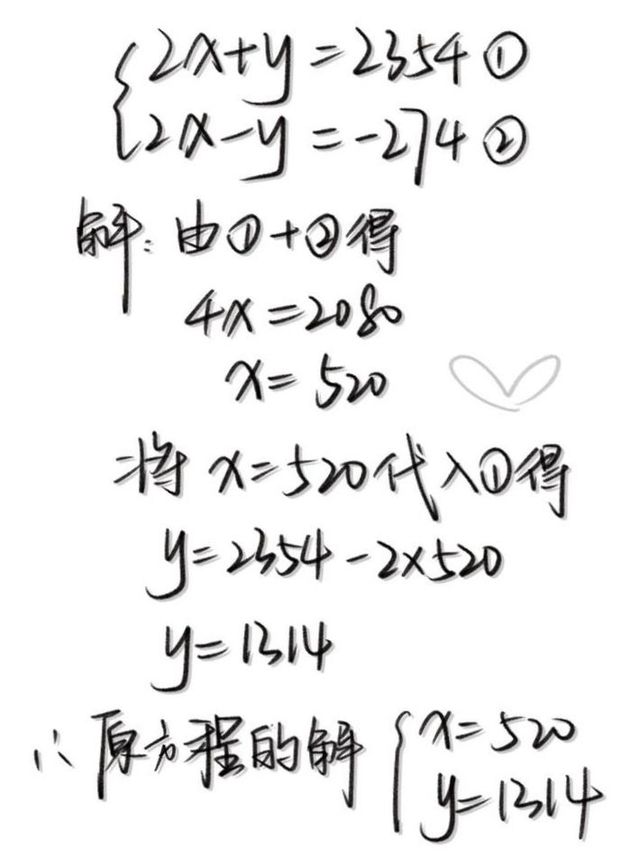 {2x+y=2354①
2x-y=-274②
解:由①+②得
4x=2080
x=520
将 x=520代入①得
y=2354-2×520
y=1314
∴原方程的解{x=520
y=1314